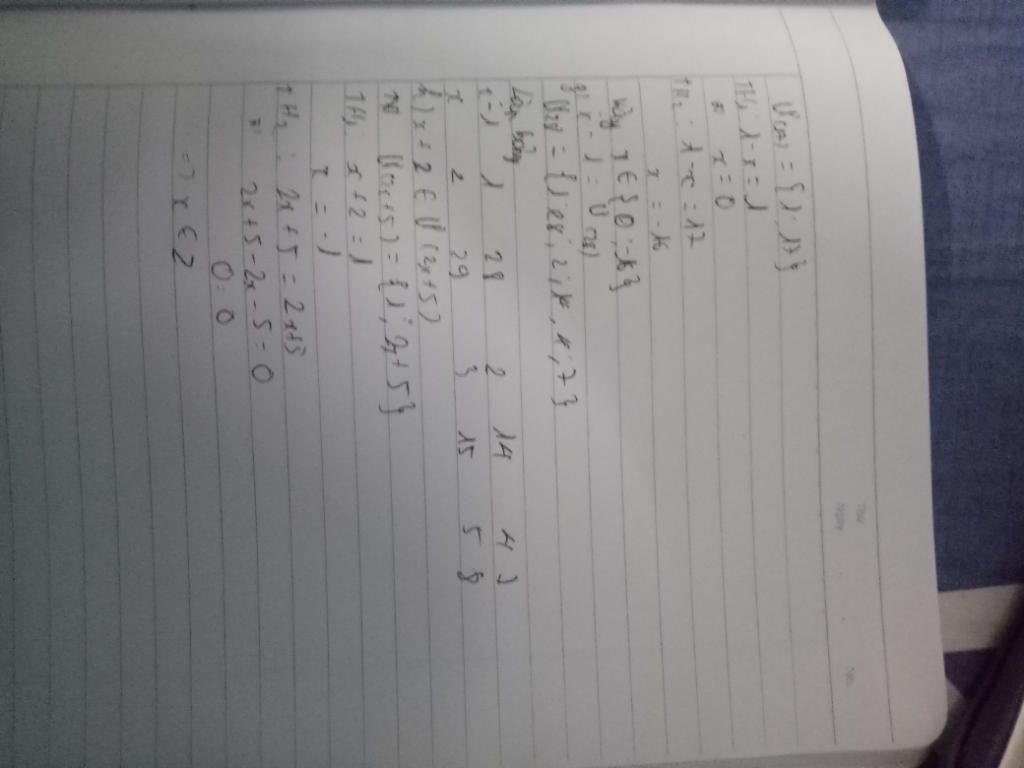 Ư(17) = {1; 17}
TH1: 1 - x = 1
x = 0
TH2: 1 - x = 17
x = -16
Vậy x ∈ {0; -16}
g) x - 1 = Ư(28)
Ư(28) = {1; 28; 2; 14; 4; 7}
Lập bảng
x-1 1 28 2 14 4 7
x 2 29 3 15 5 8
h) x + 2 ∈ Ư(2x+5)
Ư(2x+5) = {1; 2x+5}
TH1: x + 2 = 1
x = -1
TH2: 2x + 5 = 2x+5
= 2x+5 - 2x - 5 = 0
0 = 0
=> x ∈ Z